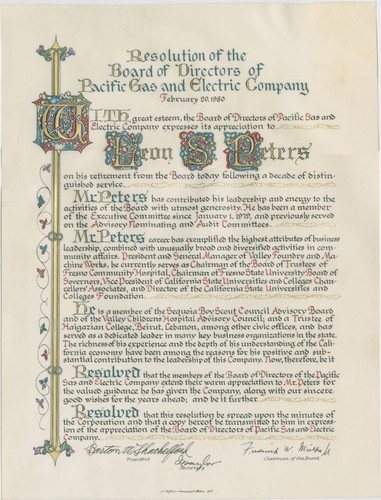 Resolution of the
Board of Directors of
Pacific Gas and Electric Company
February 20, 1980
WITH great esteem, the Board of Directors of Pacific Gas and
Electric Company expresses its appreciation to
Leon S. Peters
on his retirement from the Board today following a decade of distin-
guished service.
Mr. Peters has contributed his leadership and energy to the
activities of the Board with utmost generosity. He has been a member
of the Executive Committee since January 1, 1979, and previously served
on the Advisory Nominating and Audit Committees.
Mr. Peters' career has exemplified the highest attributes of business
leadership, combined with unusually broad and diversified activities in com-
munity affairs. President and General Manager of Valley Foundry and Ma-
chine Works, he currently serves as Chairman of the Board of Trustees of
Fresno Community Hospital, Chairman of Fresno State University Board of
Governors, Vice President of California State Universities and Colleges Chan-
cellors' Associates, and Director of the California State Universities and
Colleges Foundation.
He is a member of the Sequoia Boy Scout Council Advisory Board
and of the Valley Childrens' Hospital Advisory Council; and a Trustee of
Haigazian College, Beirut, Lebanon, among other civic offices, and has
served as a dedicated leader in many key business organizations in the state.
The richness of his experience and the depth of his understanding of the Cali-
fornia economy have been among the reasons for his positive and sub-
stantial contribution to the leadership of this Company. Now, therefore, be it
Resolved that the members of the Board of Directors of the Pacific
Gas and Electric Company extend their warm appreciation to Mr. Peters for
the valued guidance he has given the Company, along with our sincere
good wishes for the years ahead; and be it further
Resolved that this resolution be spread upon the minutes of
the Corporation and that a copy hereof be transmitted to him in expres-
sion of the appreciation of the Board of Directors of Pacific Gas and Electric
Company.
Barton W. Shackelford
President
Secretary
Frederick W. Mielke Jr
Chairman of the Board